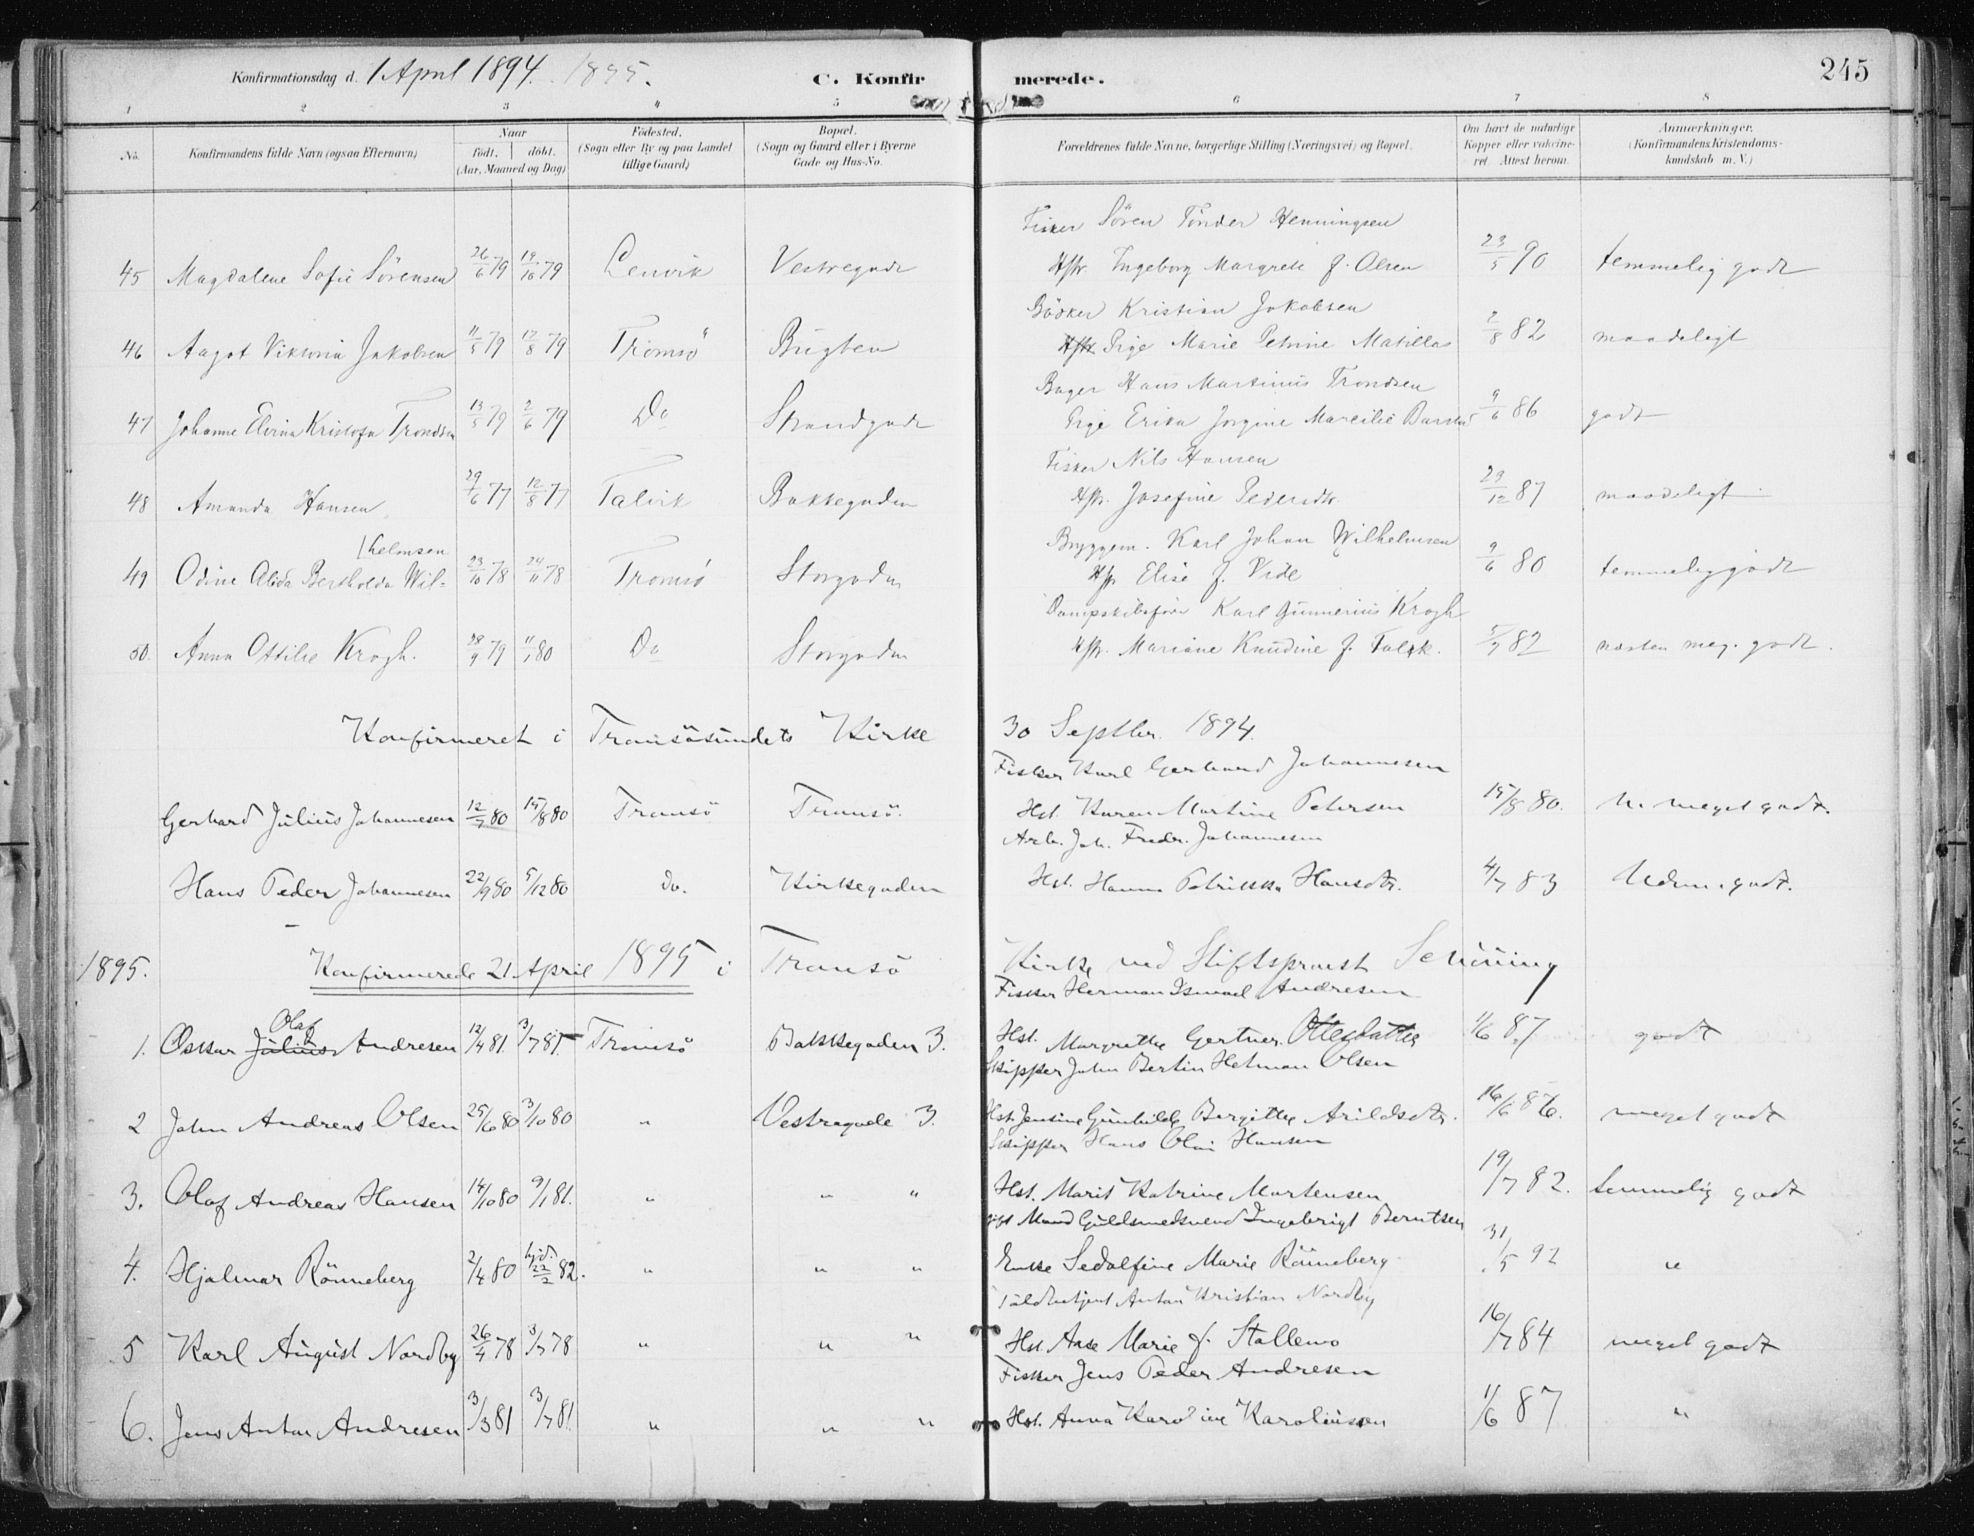 Konfirmationsdag d. 1 April 1894. 1895. C. Konfirmerede. 245
1 2 3 4 5 6 7 8
No. Konfirmandens fulde Navn (ogsaa Efternavn) Naar født, døbt. (Aar, Maaned og Dag) Fødested. (Sogn eller By og paa Landet tillige Gaard) Bopæl. (Sogn og Gaard eller i Byerne Gade og Hus-No. Forældrenes fulde Navne, borgerlige Stilling (Næringsvei) og Bopæl. Om havt de naturlige Kopper eller vaccineret. Attest herom. Anmærkninger. (Konfirmandens Kristendomskundskab m. V.)
Fisker Sören Tönder Henningsen
45 Magdalene Sofie Sörensen 26/6 79 19/10 79 Lenvik Vestregade Hstr. Ingeborg Margrete f. Olsen 23/5 90 temmelig godt
Bödker Kristian Jakobsen
46 Aagot Viktoria Jakobsen 11/5 79 17/8 79 Tromsö Bugten Pige Marie Petrine Matillas 2/8 82 maadeligt
Bager Hans Martinus Trondsen
47 Johanne Elvina Kristofa Trondsen 13/5 79 2/6 79 Do Strandgade Pige Erika Jorgine Marcilie 9/6 86 godt
Fisker Nils Hansen
48 Amanda Hansen 29/6 77 12/8 77 Talvik Bakkegaden Hstr. Josefine Pedersdtr. 29/12 87 maadeligt
Bryggem. Karl Johan Wilhelmsen
49 Odine Alida Bertholda Wil=|helmsen 23/10 78 24/11 78 Tromsö Storgaden Hstr Elise f. Vide 9/6 80 temmelig godt
Dampskibsförer Karl Gunnerius Krogh
50. Anna Ottilie Krogh. 28/9 79 11/1 80 Do Storgaden Hstr. Mariane Knudine f. Falck. 5/7 82 næsten meg. godt.
Konfirmeret i Tromsösundets Kirke 30 Septbr. 1894.
Fisker Karl Gerhard Johannesen
Gerhard Julius Johannesen 12/7 80 15/8 80 Tromsö Tromsö. Hst. Karen Martine Petersen 15/8 80. N. meget godt.
Arb. Joh. Fredr. Johannesen
Hans Peder Johannesen 22/9 80 5/12 80 Do. Kirkegaden Hst. Hanna Petrikka Hansdtr. 4/7 83 Udm. godt.
1895. Konfirmerede 21 April 1895 i Tromsö Kirke ved Stiftsprovst Schiüning
Fisker Herman Ismael Andresen
1. Oskar Julius Olaf Andresen 12/4 81. 3/7 81. Tromsö Bakkegaden 3. Hst. Margrethe Gertner. Ottesdatter 1/6 87. godt
Skipper John Bertin Hetman Olsen
2 John Andreas Olsen 25/6 80 3/10 80 " Vestregade 3. Hst. Jensine Gunhilde Bergitte Arildsdtr. 16/6 86. meget godt
Skipper Hans Olai Hansen
3. Olaf Andreas Hansen 14/10 80 9/1 81. " " " Hst. Marit Katrine Mortensen 19/7 82. temmelig godt
gift Mand Guldsmedsvend Ingebrigt Berntsen
4. Hjalmar Rönneberg 2/4 80 hjd. 22/2 82. " " " Enke Sedolfine Marie Rönneberg 31/5 92 "
Toldbetjent Anton Kristian Nordby
5 Karl August Nordby 26/4 78 3/7 78 " " " Hst. Aase Marie f. Stallemo 16/7 84 meget godt
Fisker Jens Peder Andresen
6. Jens Anton Andresen 3/3 81 3/7 81. " " " Hst. Anna Karoline Karoliussen 1/6 87 "